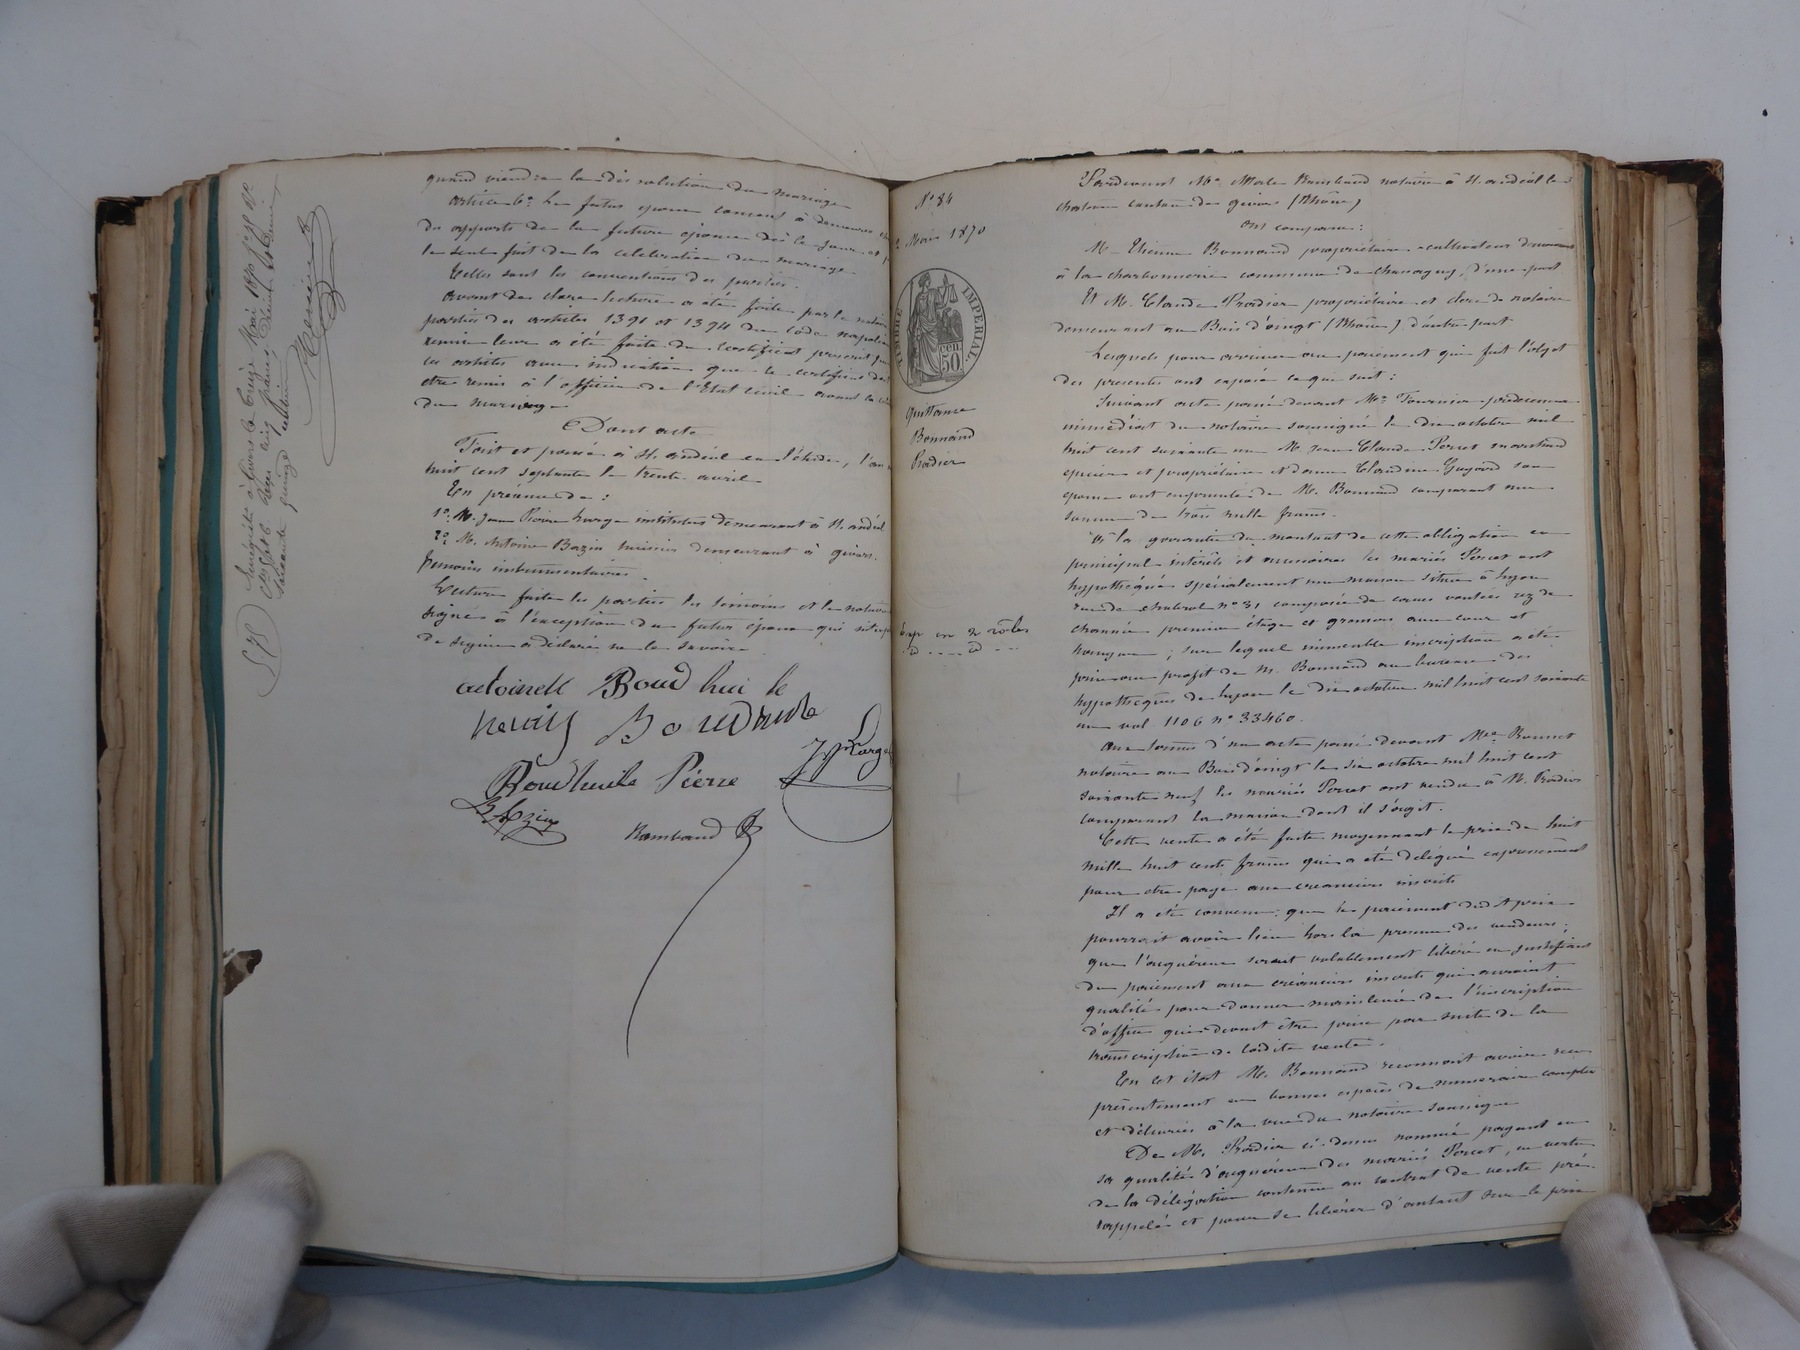 quand viendra la dissolution du mariage
article 6e Le futur époux consent à demeurer
du apports de la future épouse dès le jour et
le seul fait de la célébration du mariage
Telles sont les conventions des parties.
avant de clore lecture a été faite par le notaire
parties des articles 1391 et 1394 du code napoléon
remise leur a été faite du certificat prescrit par
ces articles avec indication que le certificat
être remis à l'officier de l'Etat civil avant la
du mariage
Dont acte
Fait et passé à St andéol en l'étude, l'an
huit cent soixante dix le trente avril
En présence de :
1o M. Jean Pierre Large instituteur demeurant à St andéol
2o M. Antoine Bazin huissier demeurant à givors.
témoins instrumentaires.
Lecture faite les parties les témoins et le notaire
signé à l'exception du futur époux qui
de signer a déclaré ne le savoir
Bazin
Rambaud
No 84
Mai 1870
TIMBRE IMPERIAL.
50 CEN.
Quittance
Bonnand
Pradier
Exp en 2 rôles
Pardevant Me Rambaud notaire à St andéol le
château canton de givors (Rhône)
ont comparu :
M. Etienne Bonnand propriétaire cultivateur demeurant
à la charbonnerie commune de chassagny, d'une part
Et M. Claude Pradier propriétaire et clerc de notaire
demeurant au Bois d'oingt (Rhône) d'autre part
Lesquels pour arriver au paiement qui fait l'objet
des présentes ont exposé ce qui suit :
Suivant acte passé devant Me Fournier prédécesseur
immédiat du notaire soussigné le dix octobre mil
huit cent soixante un M. Jean Claude Percet marchand
épicier et propriétaire et dame Claudine Guyard son
épouse ont emprunté de M. Bonnand comparant une
somme de trois mille francs.
A la garantie du montant de cette obligation en
principal intérêts et accessoires les mariés Percet ont
hypothéqué spécialement une maison située à Lyon
rue de chabrol no 31 composée de caves voutées rez de
chaussée premier étage et greniers avec cour et
hangar ; sur lequel immeuble inscription a été
prise au profit de M. Bonnand au bureau des
hypothèques de Lyon le dix octobre mil huit cent soixante
un vol 1106 no 33460.
Aux termes d'un acte passé devant Me Bonnet
notaire au Bois d'oingt le six octobre mil huit cent
soixante neuf les mariés Percet ont vendu à M. Pradier
comparant la maison dont il s'agit.
Cette vente a été faite moyennant le prix de huit
mille huit cents francs qui a été délégué expressément
pour être payé aux créanciers inscrits
Il a été convenu que le paiement dudit prix
pourrait avoir lieu hors la présence des vendeurs ;
que l'acquéreur serait valablement libéré en justifiant
du paiement aux créanciers inscrits qui auraient
qualité pour donner mainlevée de l'inscription
d'office qui devait être prise par suite de la
transcription de ladite vente.
En cet état M. Bonnand reconnait avoir reçu
présentement en bonnes espèces de numéraire comptées
et délivrées à la vue du notaire soussigné
De M. Pradier ci-dessus nommé payant en
sa qualité d'acquéreur des mariés Percet, en vertu
de la délégation contenue au contrat de vente pré-
rappelé et pour se libérer d'autant sur le prix